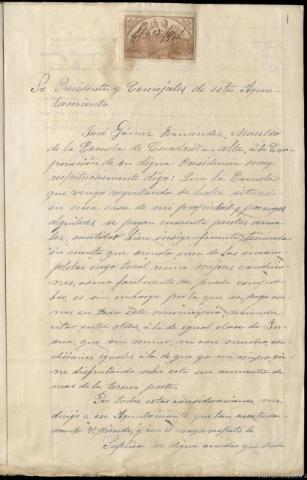 Sr Presidente y Concejales de este Ayun-
tamiento
José Gómez Fernández, Maestro
de la Escuela de Alta, á la Cor-
poración de su digna Presidencia muy
respetuosamente digo: Que la Escuela
que vengo regentando se halla situada
en una casa de mi propiedad y por cuyos
alquileres se pagan cincuenta pesetas anua-
les, cantidad bien insignificante, teniendo
en cuenta que siendo una de las
cuyo local reune mejores condicio-
nes, como facilmente se puede compro-
bar, es sin embargo por la que se paga me-
nos en todo este municipio, pudiendo
citar entre otras á la de igual clase de
que sin reunir, ni con mucho, con-
diciones iguales á la de que yo me ocupo vie-
ne disfrutando sobre esta un aumento de
mas de la tercera parte.
Por todas estas consideraciones me
dirijo á ese Ayuntamiento que tan acertada-
mente V. preside, y con el mayor respeto le
Suplico se digne acordar que desde